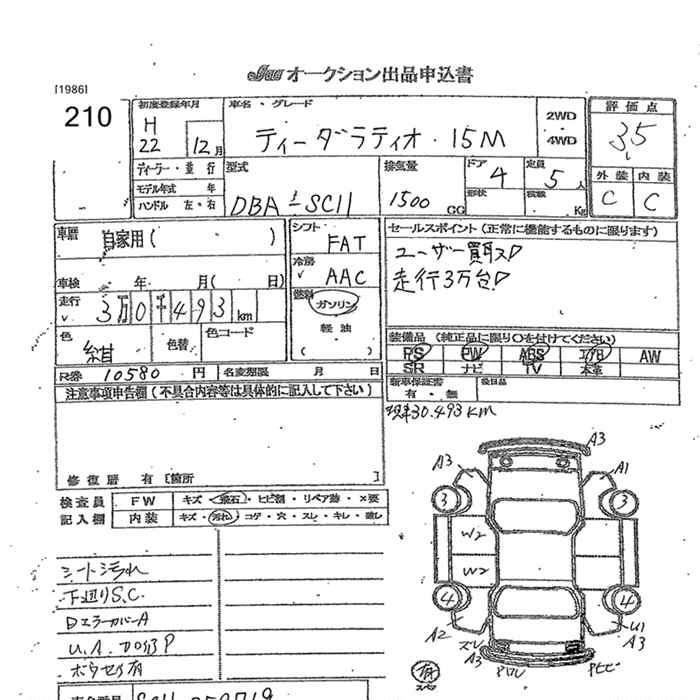 Jaa オークション出品申込書
[1986]
210
初度登録年月 H 22 12月
車名・グレード
ティーダラティオ・15M
2WD・4WD
評価点
3.5
外装 内装
C C
ディーラー・並行
モデル年式 年
ハンドル 左・右
型式
DBA-SC11
排気量
1500 CC
ドア 4
形状
定員 5人
積載 Kg
車歴 自家用( )
車検 年 月( 日)
走行 3万0千493km
色 紺
色替
色コード
シフト
FAT
冷房
AAC
燃料
ガソリン
軽油
( )
セールスポイント(正常に機能するものに限ります)
ユーザー買入
走行3万台
装備品(純正品に限り○を付けてください)
PS PW ABS エアB AW
SR ナビ TV 本革
新車保証書 有・無
後日品
R券 10580 円
名変期限 月 日
現車30.493KM
注意事項申告欄(不具合内容等は具体的に記入して下さい)
修復歴 有[箇所 ]
検査員
記入欄
FW キズ・飛石・ヒビ割・リペア跡・×要
内装 キズ・汚れ・コゲ・穴・スレ・キレ・激し
シート汚れ
下廻りS.C.
DミラーカバーA
ボウセイ有
A3
A3 A1
3 3
W2
W2
4 4
A2 スレ
A3
U1
A3
有
車台番号 SC11